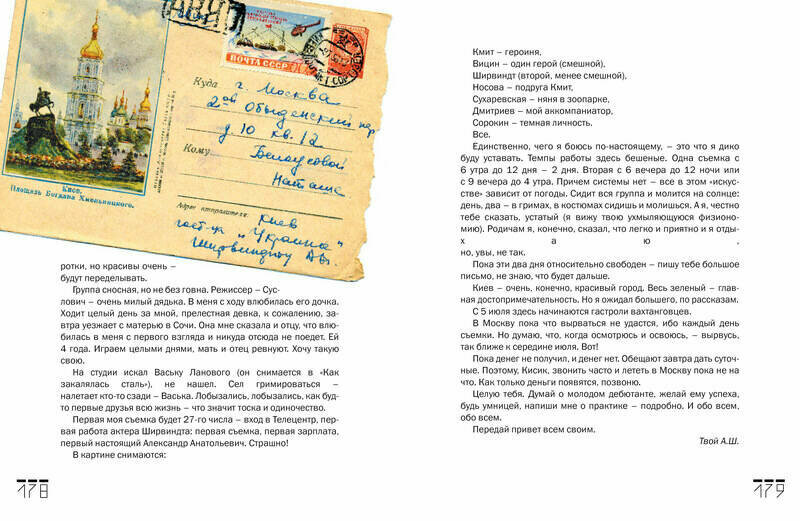 АВИА
ПОЧТА СССР
Куда
г. Москва
2ой Обыденский пер
д 10 кв. 12
Кому
Белоусовой
Наташе
Адрес отправителя:
Киев
гост-ца "Украина"
Ширвиндт А.
Киев.
Площадь Богдана Хмельницкого.
ротки, но красивы очень –
будут переделывать.
Группа сносная, но не без говна. Режиссер – Сус-
лович – очень милый дядька. В меня с ходу влюбилась его дочка.
Ходит целый день за мной, прелестная девка, к сожалению, за-
втра уезжает с матерью в Сочи. Она мне сказала и отцу, что влю-
билась в меня с первого взгляда и никуда отсюда не поедет. Ей
4 года. Играем целыми днями, мать и отец ревнуют. Хочу такую
свою.
На студии искал Ваську Ланового (он снимается в «Как
закалялась сталь»), не нашел. Сел гримироваться –
налетает кто-то сзади – Васька. Лобызались, лобызались, как буд-
то первые друзья всю жизнь – что значит тоска и одиночество.
Первая моя съемка будет 27-го числа – вход в Телецентр, пер-
вая работа актера Ширвиндта: первая съемка, первая зарплата,
первый настоящий Александр Анатольевич. Страшно!
В картине снимаются:
178
Кмит – героиня,
Вицин – один герой (смешной),
Ширвиндт (второй, менее смешной),
Носова – подруга Кмит,
Сухаревская – няня в зоопарке,
Дмитриев – мой аккомпаниатор,
Сорокин – темная личность.
Все.
Единственно, чего я боюсь по-настоящему, – это что я дико
буду уставать. Темпы работы здесь бешеные. Одна съемка с
6 утра до 12 дня – 2 дня. Вторая с 6 вечера до 12 ночи или
с 9 вечера до 4 утра. Причем системы нет – все в этом «искус-
стве» зависит от погоды. Сидит вся группа и молится на солнце:
день, два – в гримах, в костюмах сидишь и молишься. А я, честно
тебе сказать, устатый (я вижу твою ухмыляющуюся физионо-
мию). Родичам я, конечно, сказал, что легко и приятно и я отды-
х а ю ,
но, увы, не так.
Пока эти два дня относительно свободен – пишу тебе большое
письмо, не знаю, что будет дальше.
Киев – очень, конечно, красивый город. Весь зеленый – глав-
ная достопримечательность. Но я ожидал большего, по рассказам.
С 5 июля здесь начинаются гастроли вахтанговцев.
В Москву пока что вырваться не удастся, ибо каждый день
съемки. Но думаю, что, когда осмотрюсь и освоюсь, – вырвусь,
так ближе к середине июля. Вот!
Пока денег не получил, и денег нет. Обещают завтра дать суточ-
ные. Поэтому, Кисик, звонить часто и лететь в Москву пока не на
что. Как только деньги появятся, позвоню.
Целую тебя. Думай о молодом дебютанте, желай ему успеха,
будь умницей, напиши мне о практике – подробно. И обо всем,
обо всем.
Передай привет всем своим.
Твой А.Ш.
179